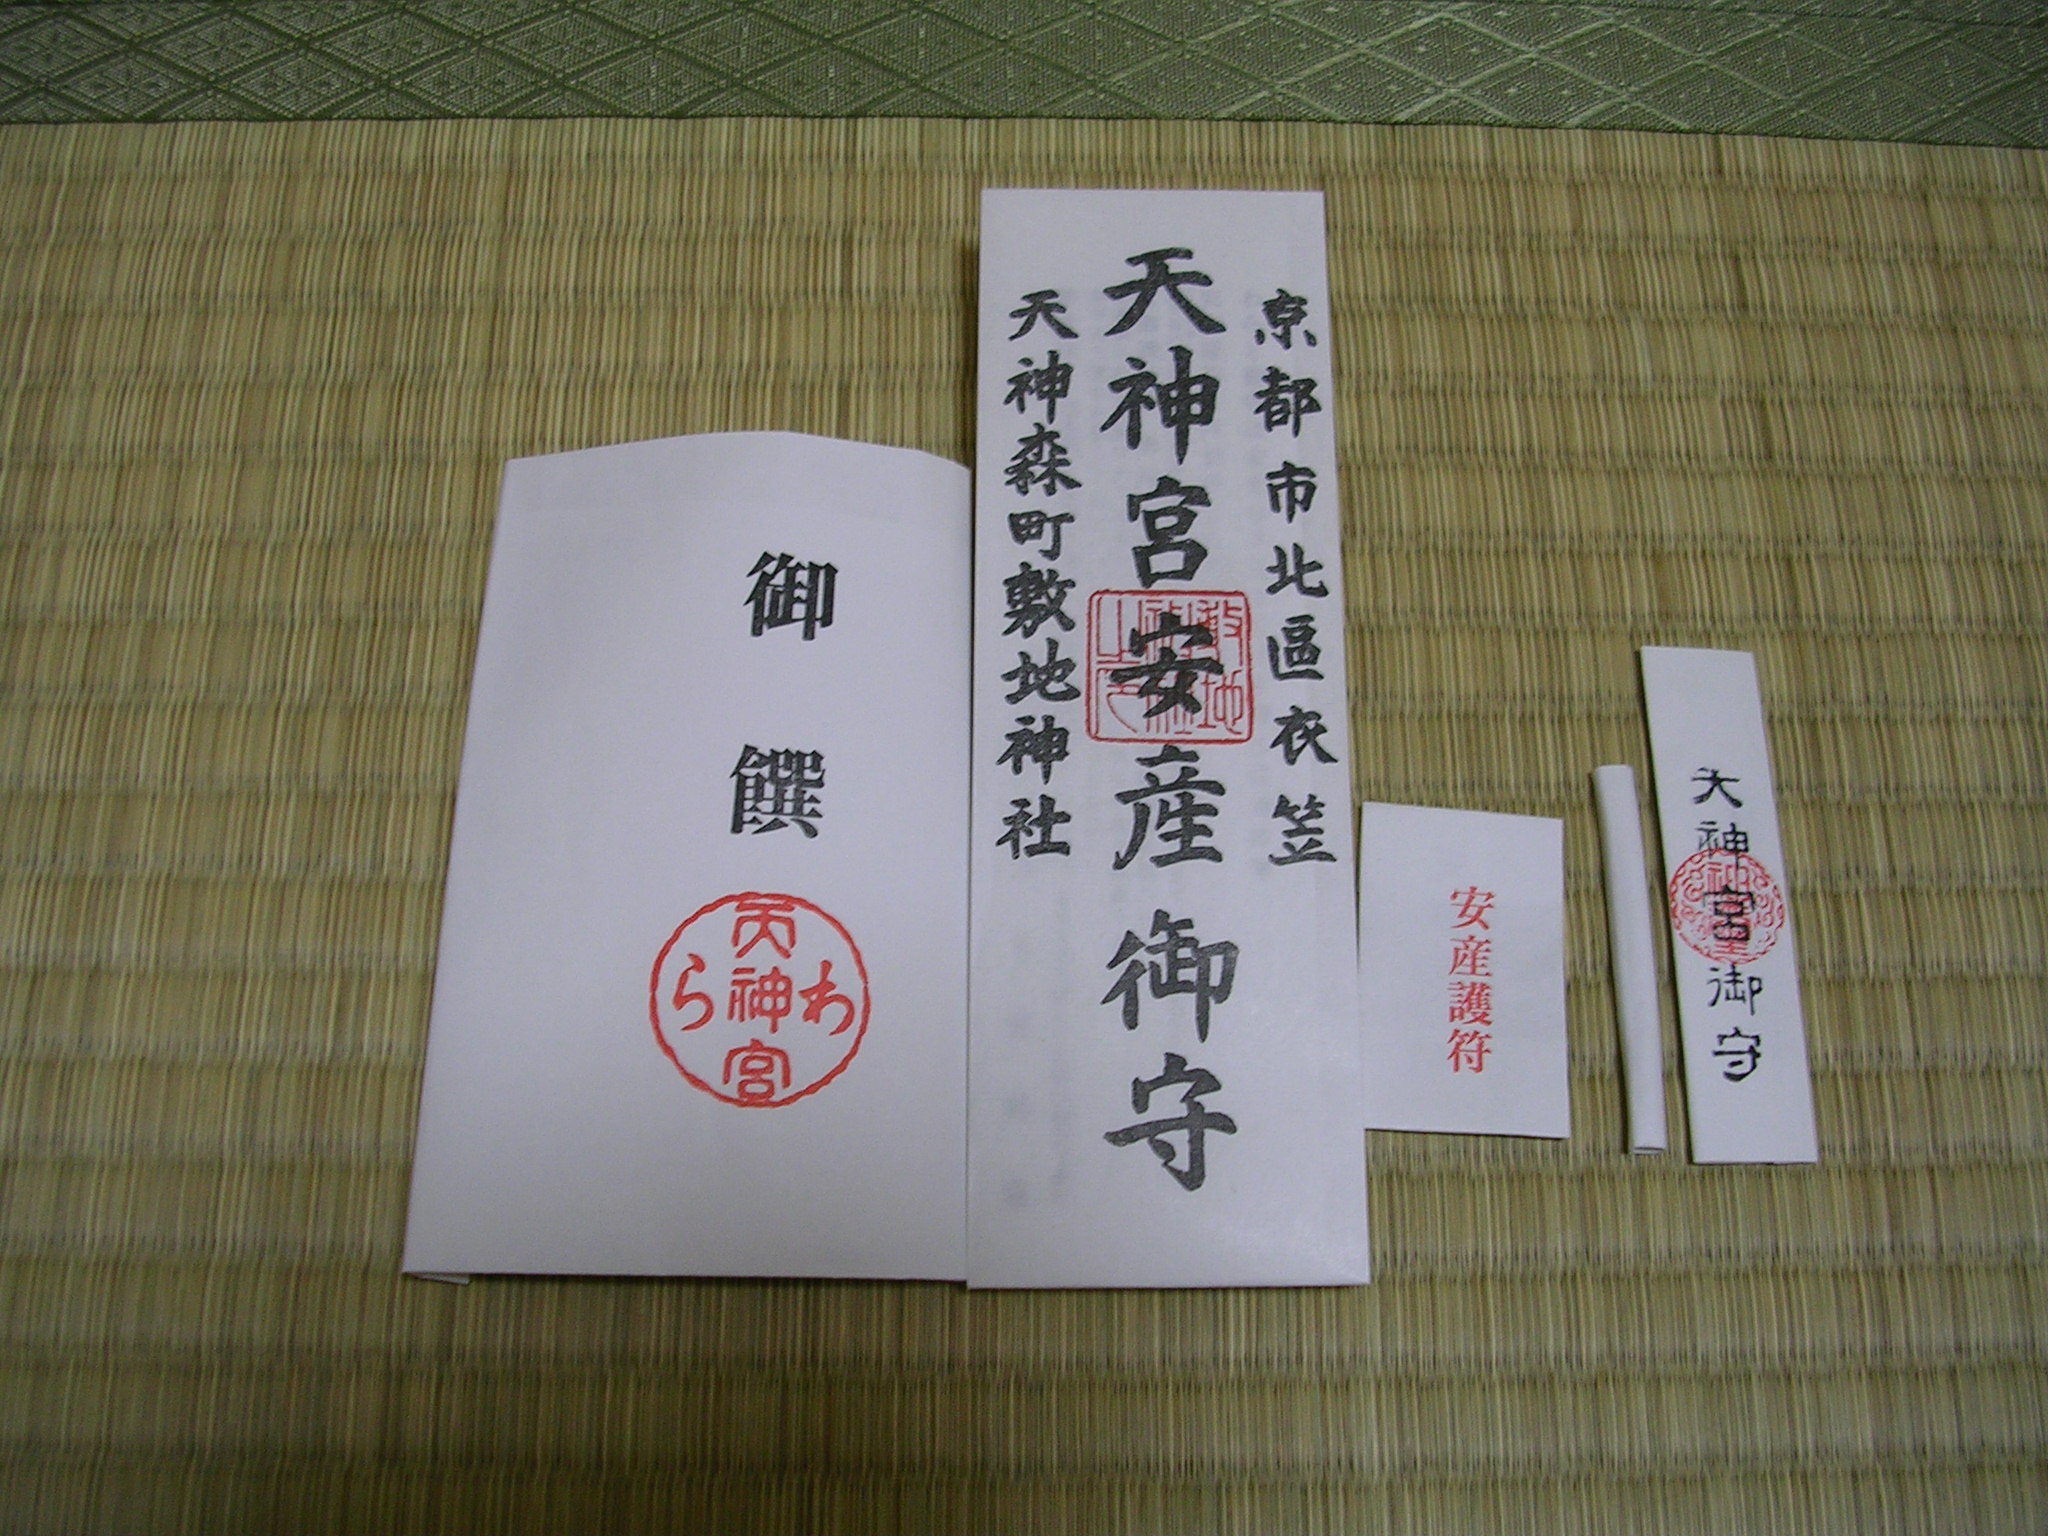 天神宮御守
安産護符
京都市北區衣笠
天神宮安産御守
天神森町敷地神社
敷地
神社
之印
御饌
天神宮
わら